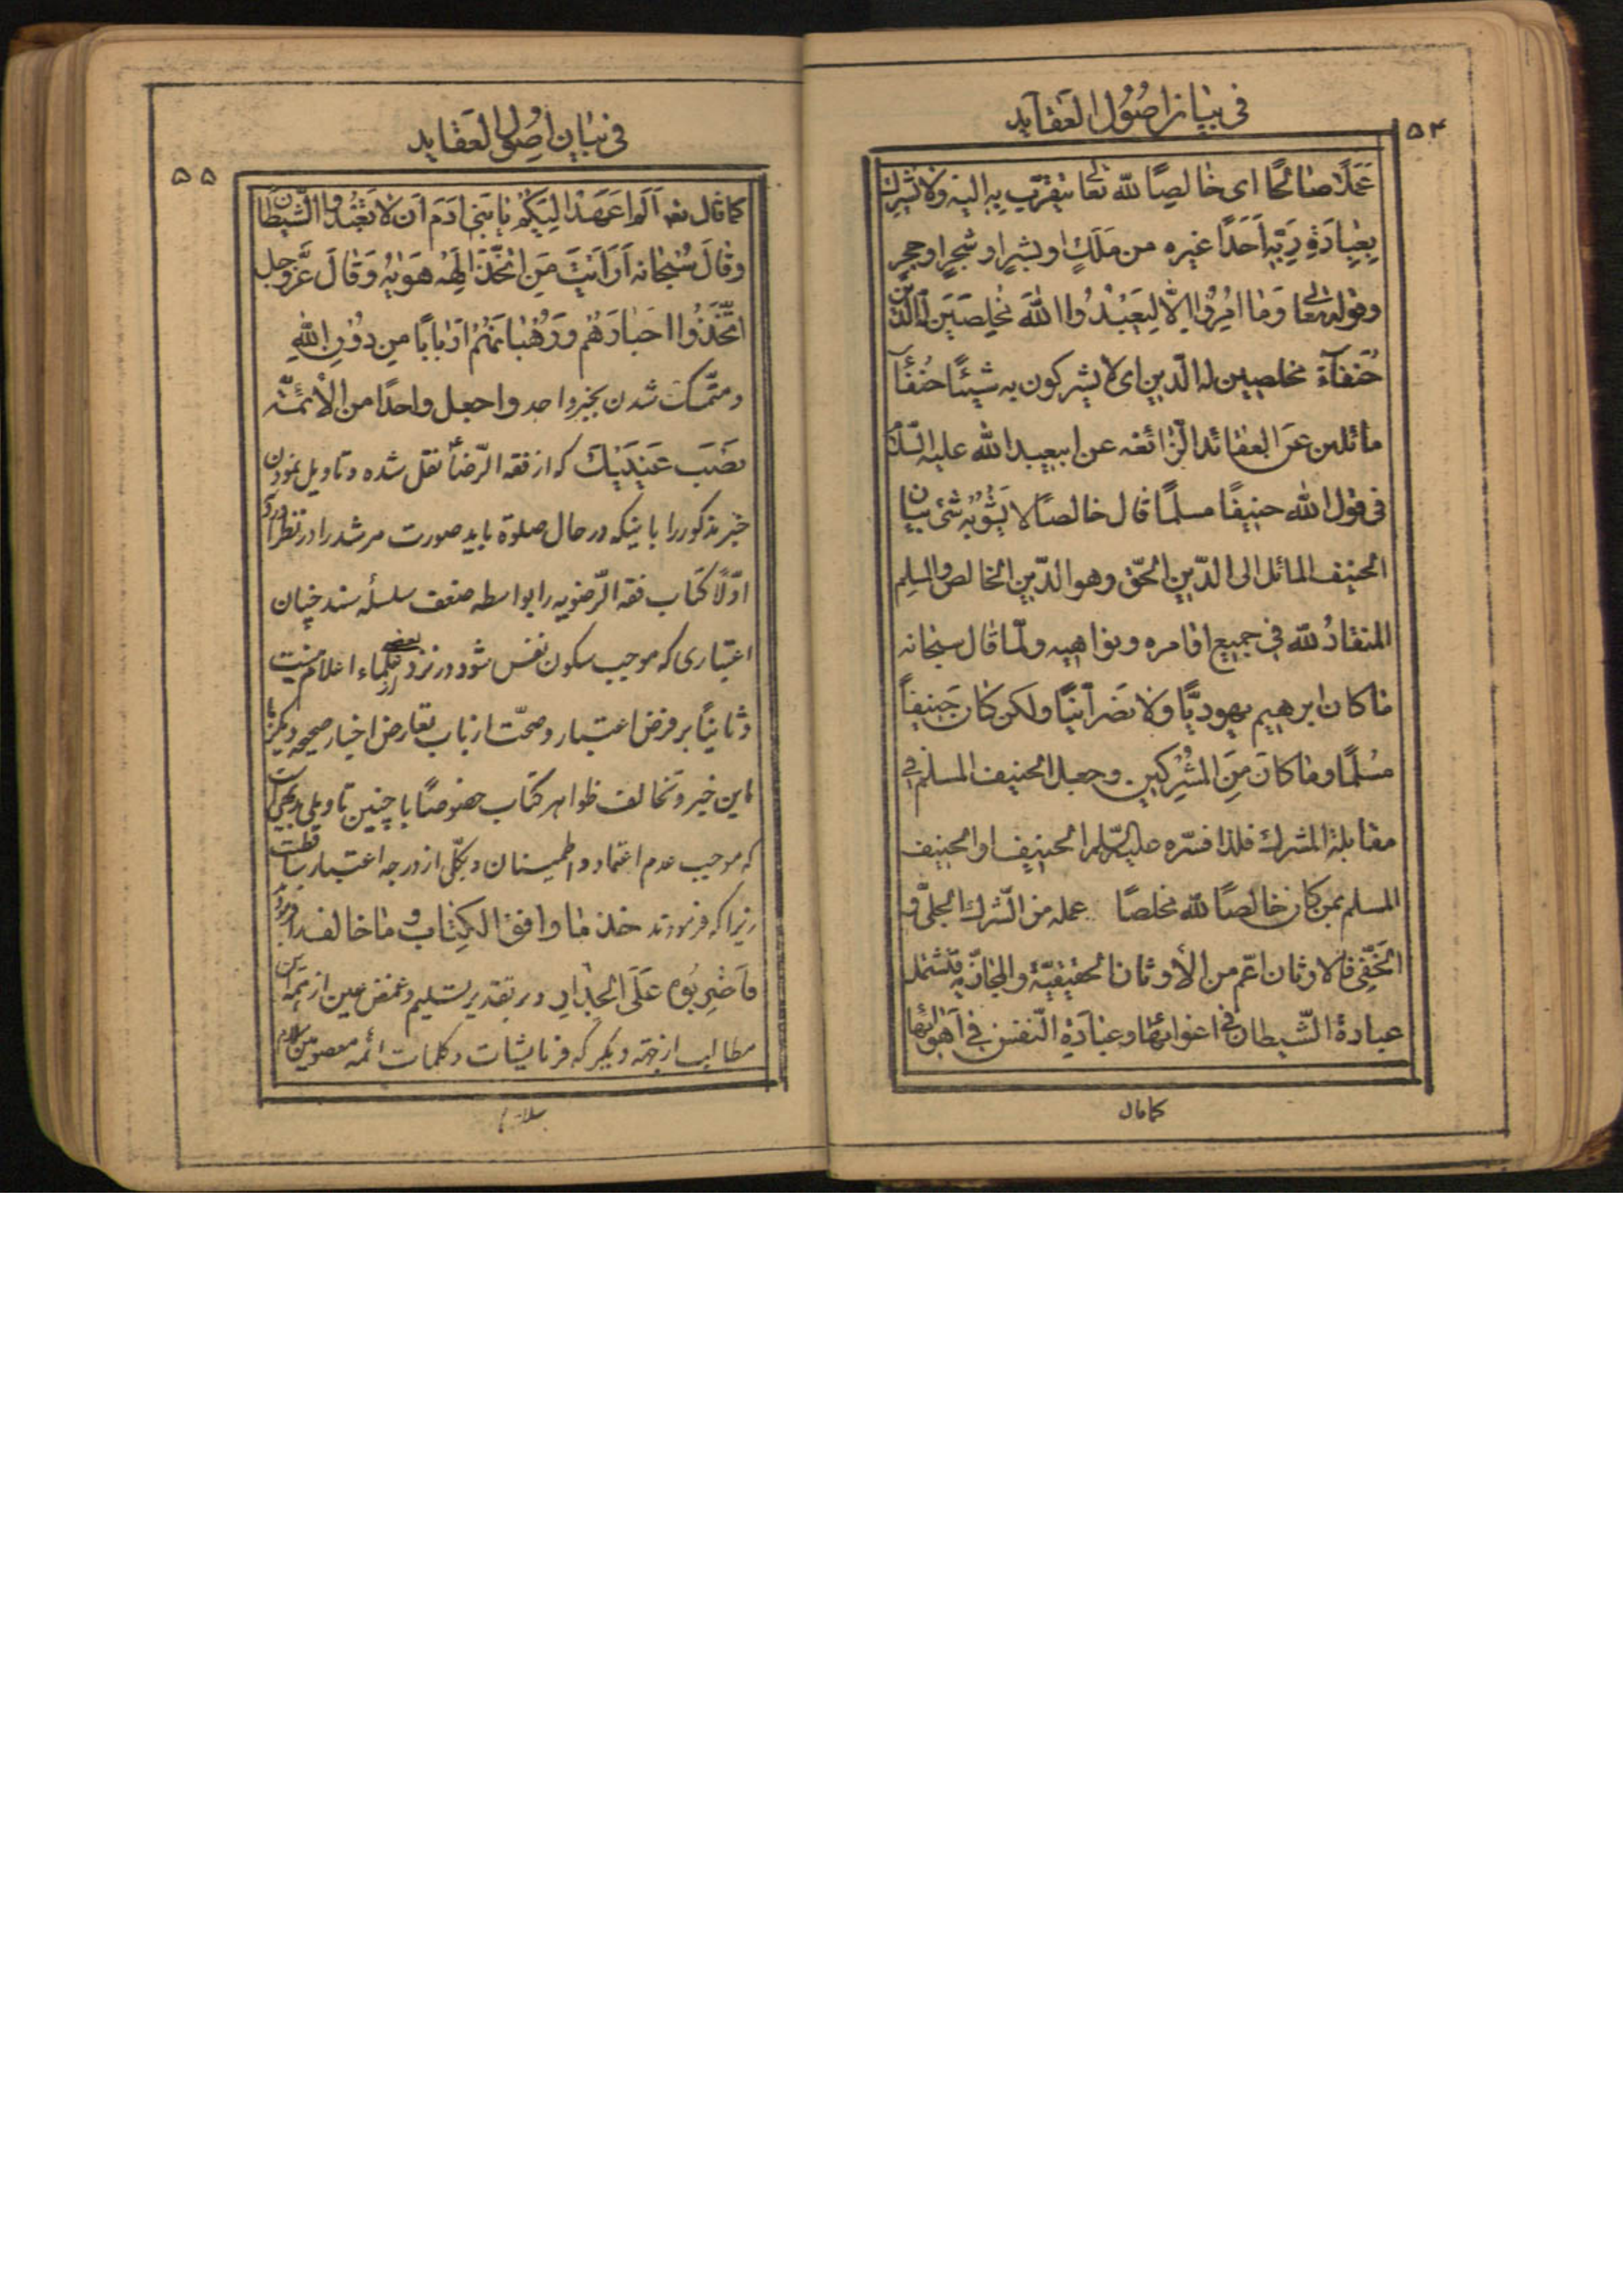 فی بیان اصُوُل العَقآید
۵۴
عَمَلًا صٰالحًا ای خٰالِصًا للّه تعٰالی یتقرّب بِه الیه وَلا یُشرِك
بِعِبٰادَةِ رَبِّهِ اَحَدًا غیره من مَلَكٍ او بشرٍ او شجرٍ او حجرٍ
وقوله تعٰالی وَمٰا اُمِرُوا اِلّٰا لِیَعبُدُوا اللّٰهَ مُخلِصینَ لَهُ الدّین
حُنَفآءَ مخلصین له الدّین ای لا یشرکون به شیئًا حُنفآء
مائلین عَن العقائد الزّائغه عن ابیعبد اللّه علیه السّلام
فی قول اللّه حنیفًا مسلمًا قال خالصًا لا یَشُوبُه شَیْ بیان
الحنیف المائل الی الدّین الحقّ وهو الدّین الخالص والمسلم
المنقادُ للّه فی جمیع اوامره ونواهیه ولمّا قال سبحانه
مٰا کان ابرهیم یهودیًّا وَلا نَصْرٰانیًّا ولکن کٰان حَنیفاً
مُسْلمًا ومٰا کانَ مِنَ المُشْرِکین وجعل الحنیف المسلم فی
مقٰابلة المشرك فلذا فسّره علیه السّلم الحنیف او الحنیف
المسلم بمن کٰان خٰالصًا للّه مخلصًا عمله من الشّرك الجلیّ و
الخَفّی فالاوثان اعّم من الأوثان الحقیقیّة والمجٰازیّة فتشمل
عبادة الشّیطان فی اغوائها وعبٰادَةِ النّفس فی اَهْوائها
کما قال
فی بَیٰان اصُول العَقٰاید
۵۵
کما قال تعٰ اَلَم اَعهَدْ اِلَیکُم یٰا بَنی اٰدَم اَن لا تَعْبُدُوا الشّیطٰان
وقٰالَ سُبْحٰانه اَرَاَیْتَ مَنِ اتَّخَذَ اِلٰهَهُ هَوٰیهُ وَقٰالَ عَزَّ وجل
اتَّخَذُوا اَحْبٰارَهُم وَرُهْبٰانَهُمُ اَرْبٰابًا مِن دُوُنِ اللّهِ
و متمّسك شدن بخبر واحد واجعل واحدًا من الأئمّه
نَصْبَ عَیْنَیْكَ که از فقه الرّضا نقل شده و تاویل نمودن
خبر مذکور را باینکه در حال صلوة باید صورت مرشد را در نظر آورد
اوّلًا کتاب فقه الرّضویه را بواسطه ضعف سلسلهٔ سند چنان
اعتباری که موجب سکون نفس شود در نزد بعضی از علماء اعلام نیست
وثانیاً بر فرض اعتبار و صحّت از باب تعارض اخبار صحیحه دیگر با
این خبر و تخالف ظواهر کتاب خصوصًا با چنین تاویلی
که موجب عدم اعتماد و اطمینان و بکلّی از درجه اعتبار ساقط است
زیرا که فرمودند خذ مٰا وافق الکِتٰاب و مٰا خالف
فاَضْرِبُوه عَلَی الْجِدٰارِ و بر تقدیر تسلیم و غمض عین از همه این
مطالب از جهته دیگر که فرمایشات و کلمات ائمه معصومین
سلام